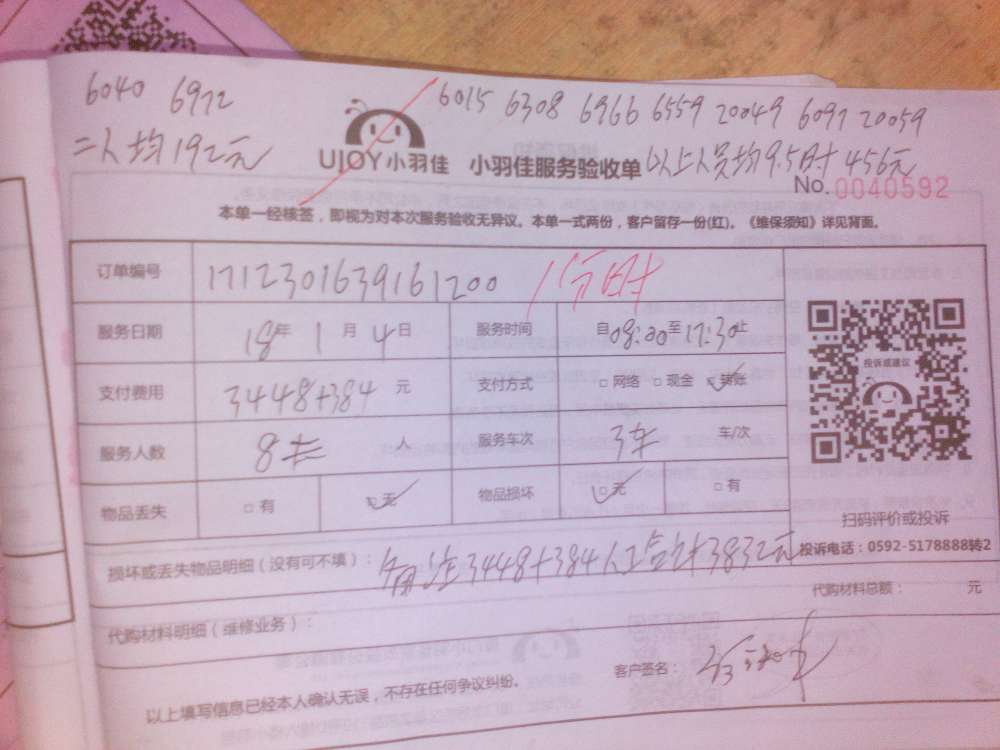 6040 6972 6015 6308 6966 6559 20049 6097 20059
二人均192元 UJOY小羽佳 小羽佳服务验收单 以上人员均9.5时 456元
No.0040592
本单一经核签，即视为对本次服务验收无异议。本单一式两份，客户留存一份(红)。《维保须知》详见背面。
订单编号 1712301639161200
服务日期 18年 1月 4日 服务时间 自08:00至17:30止
支付费用 3448+384 元 支付方式 □网络 □现金 □转账
投诉或建议
服务人数 8 人 服务车次 3车 车/次
物品丢失 □有 □无 物品损坏 □无 □有
扫码评价或投诉
损坏或丢失物品明细（没有可不填）： 备注3448+384人工合计3832元 投诉电话：0592-5178888转2
代购材料总额： 元
代购材料明细（维修业务）：
客户签名：
以上填写信息已经本人确认无误，不存在任何争议纠纷。